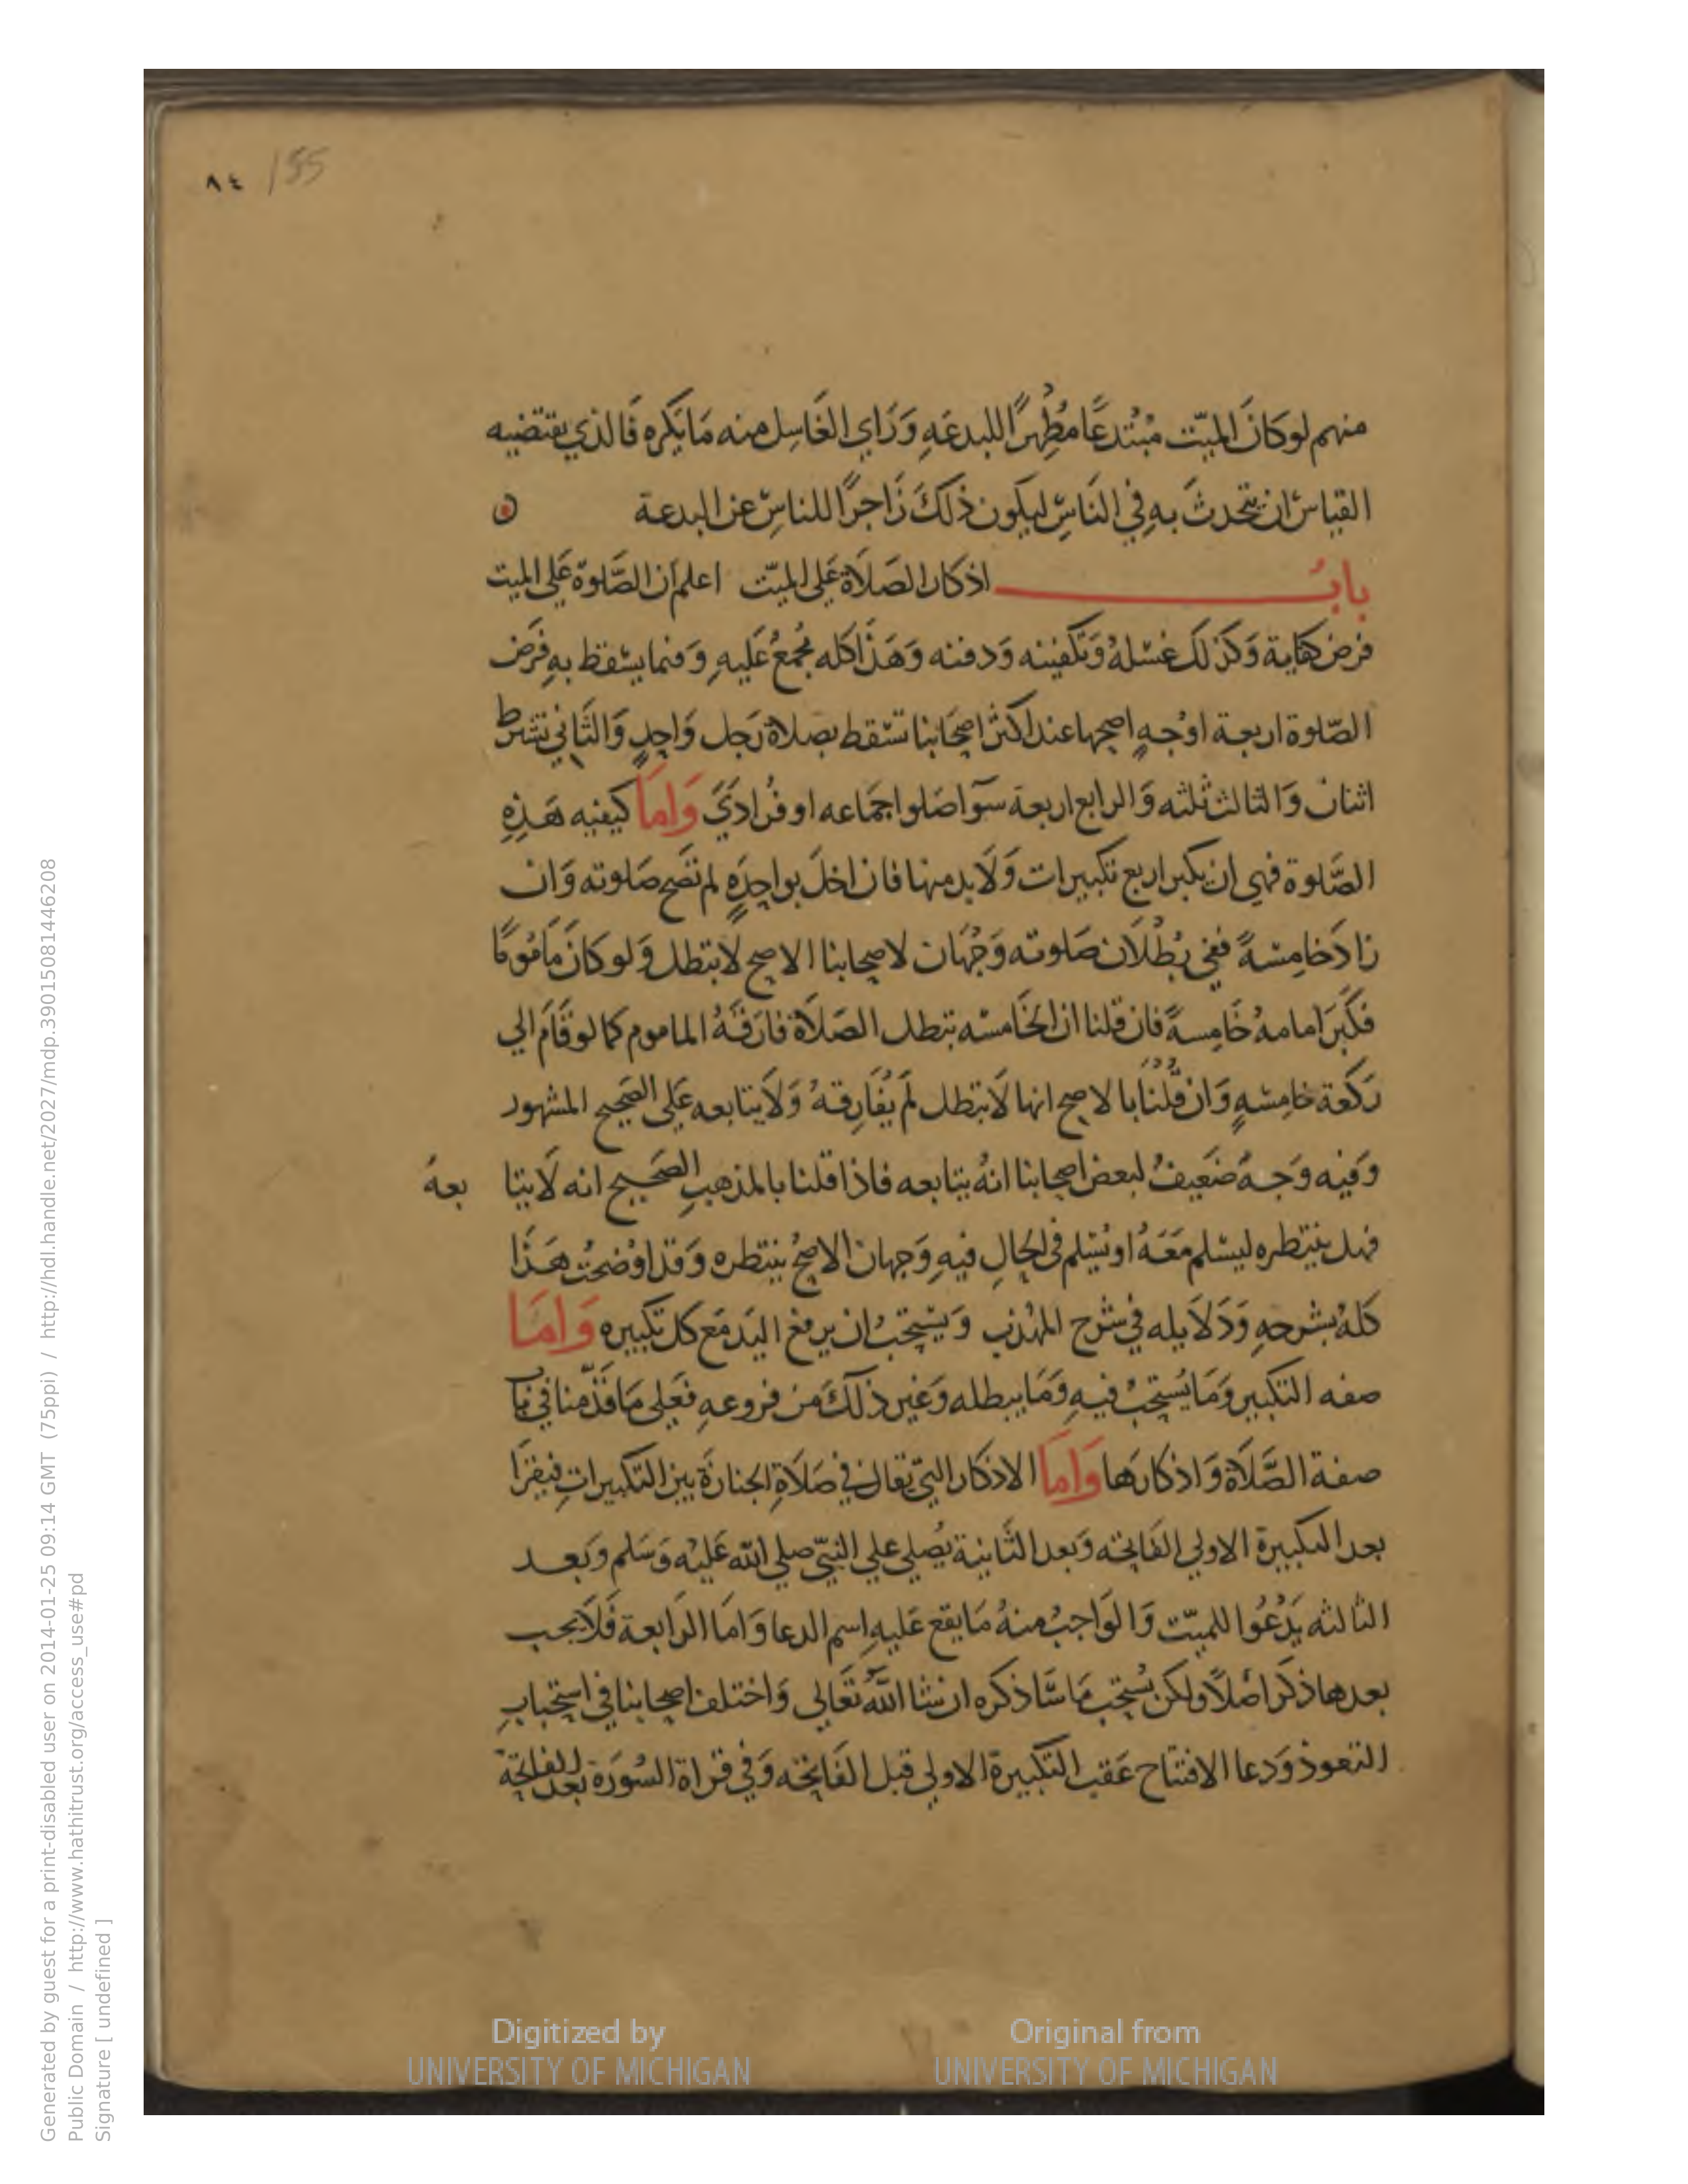 ٨٤ 155
منهم لو كانَ الميّت مُبْتدعًا مُظْهِرًا للبدعَهِ وَرَاي الغَاسِل منه مَا يَكره فَالذي يقتضيه
القياس ان يتحدثَ بهِ في النَاسِ ليكون ذلكَ زَاجرًا للناسِ عن البدعة
بابُ اذكار الصَلاَة عَلى الميّت اعلم اَن الصَّلوة عَلى الميت
فرض كفاية وَكذلك غسْلهُ وَتكفينه وَدفنه وَهَذَا كله مُجمعُ عَليهِ وَفيما يسْقط بهِ فَرَض
الصّلوة اربعة اوْجهٍ اصحها عند اكثر اصحَابنا تسْقط بصلاة رَجل وَاحِدٍ وَالثَاني يَشترط
اثنان وَالثالث ثلثه وَالرابع اربعة سوَآ صَلوا جمَاعه او فُرَاديَ وَامَا كيفيه هَذِهِ
الصَّلوة فهي ان يكبر اربع تكبيرات وَلاَ بد منها فان اخلَ بواحِدَةٍ لم تصَح صَلوته وَان
زادَ خامِسْةً ففي بُطْلاَن صَلوته وَجْهَان لاصحابنا الاصح لاَ تبطل وَلو كانَ مَامُومًا
فكَبَر امامهُ خَامِسةً فان قلنا ان الخَامسْه تبطل الصَلاَة فارَقَهُ الماموم كما لو قَامَ الي
رَكعَة خامِسْةٍ وَان قُلنَا بالاصح انها لاَ تبطل لَم يُفَارِقهُ وَلاَ يتابعه عَلى الصَحيح المشهور
وَفيه وَجهُ ضَعِيفُ لبعض اصحابنا انهُ يتابعه فاذا قلنا بالمذهب الصَحيح انه لاَ يتا بعهُ
فهل ينتطره ليسْلم مَعَهُ او يسْلم في الحالِ فيهِ وَجهان الاصحُ ينتطره وَقد اوْضحتُ هَذَا
كلهُ بشرحهِ وَدَلاَيله في شرْح المهْذب وَيسْتحَبُ ان يرفع اليَد مَع كل تكبيره وَامَا
صفه التكبير وَمَا يُسْتحبُ فيهِ وَمَا يبطله وَغير ذلكَ من فروعهِ فعَلى مَا قدَّمنا في بَاب
صفة الصَّلاَة وَاذكارهَا وَامَا الاذكار التي تقال في صَلاَةِ الجنازَة بين التكبيراتِ فيقرَا
بعد التكبيرة الاولي الفَاتحه وَبعد الثَانية يُصلي علي النبي صلي الله عَليْه وَسَلم وبَعد
الثالثه يَدْعُوا للميّت وَالوَاجبُ منهُ مَا يقع عَليهِ اسم الدعا وَامَا الرَابعة فَلاَ يجب
بعدها ذكر اصْلاً ولكن يُسْتحب مَا سَاذكره ان شا اللهُ تعَالي وَاختلف اصحابنا في اسْتحبابِ
التعوذ وَدعا الافتتاح عَقب التكبيرة الاولي قبل الفَاتحه وَفي قراة السُورَة بعد الفاتحة
Generated by guest for a print-disabled user on 2014-01-25 09:14 GMT (75ppi) / http://hdl.handle.net/2027/mdp.39015081446208
Public Domain / http://www.hathitrust.org/access_use#pd
Signature [ undefined ]
Digitized by UNIVERSITY OF MICHIGAN
Original from UNIVERSITY OF MICHIGAN